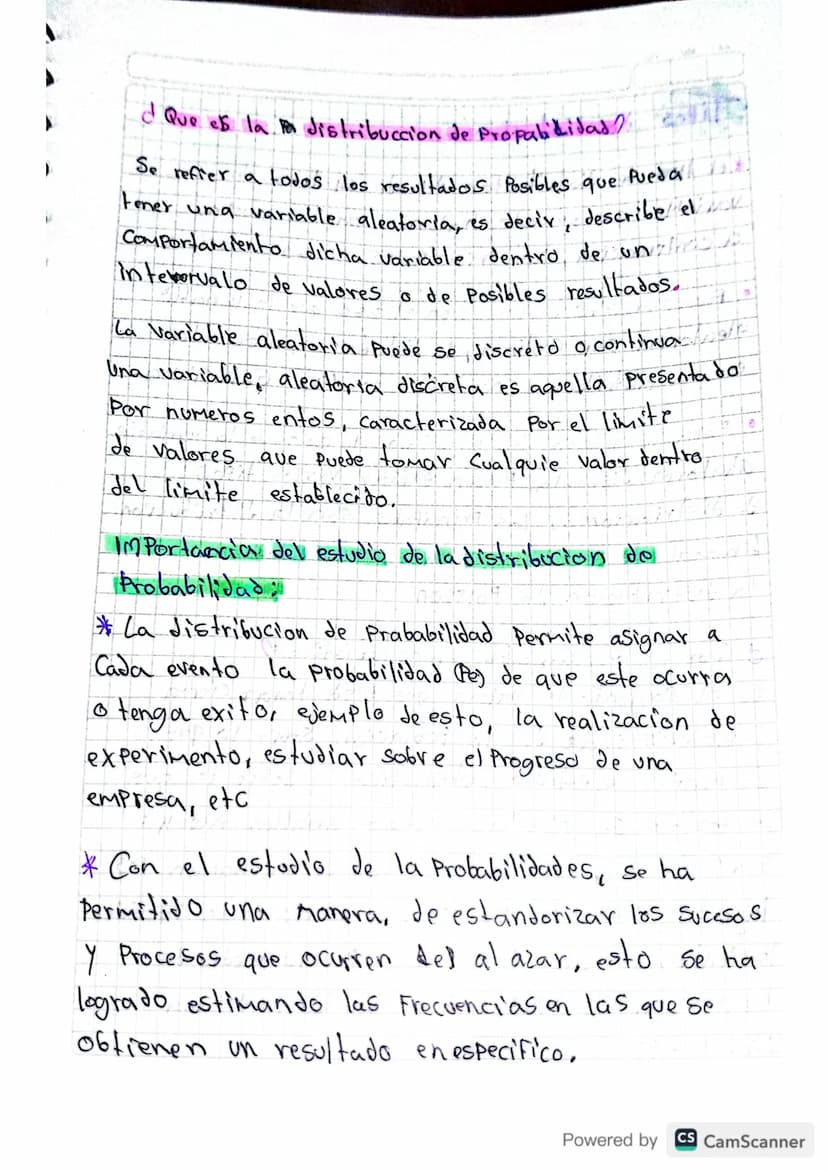 ¿ Que es la distribuccion de Propabilidad?
Se refier a todos los resultados Posibles que Pueda
tener una variable aleatoria, es decir, describe el
Comportamiento dicha variable dentro de un
intervalo de valores o de Posibles resultados.
La Variable aleatoria Puede se discreto o continua
Una variable, aleatoria discreta es aquella presentado
Por numeros entos, caracterizada Por el limite
de valores que puede tomar Cualquie valor dentro
del limite establecido.
Importancia del estudio de la distribucion de
Probabilidad:
* La distribucion de Prababilidad Permite asignar a
Cada evento la probabilidad (Pe) de que este ocurra
o tenga exito, ejemplo de esto, la realizacion de
experimento, estudiar sobre el Progreso de una
empresa, etc
* Con el estudio de la Probabilidades, se ha
Permitido una manera, de estandorizar los sucesos
Y Procesos que ocurren al azar, esto se ha
logrado estimando las Frecuencias en las que se
obtienen un resultado en especifico.
Powered by CS CamScanner